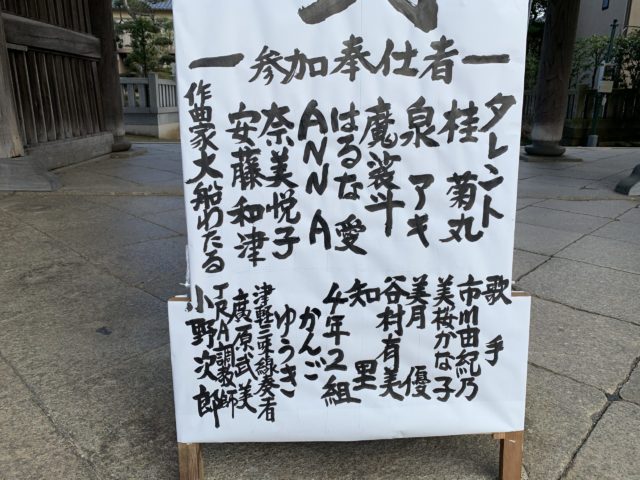 参加奉仕者
タレント
桂 菊丸
泉 アキ
魔裟斗
はるな愛
ANNA
奈美悦子
安藤和津
作曲家大船わたる
歌手
市川由紀乃
美桜かな子
美月 優
谷村有美
知里
4年2組
かんご
ゆうき
津軽三味線奏者
廣原武美
JRA調教師
小野次郎